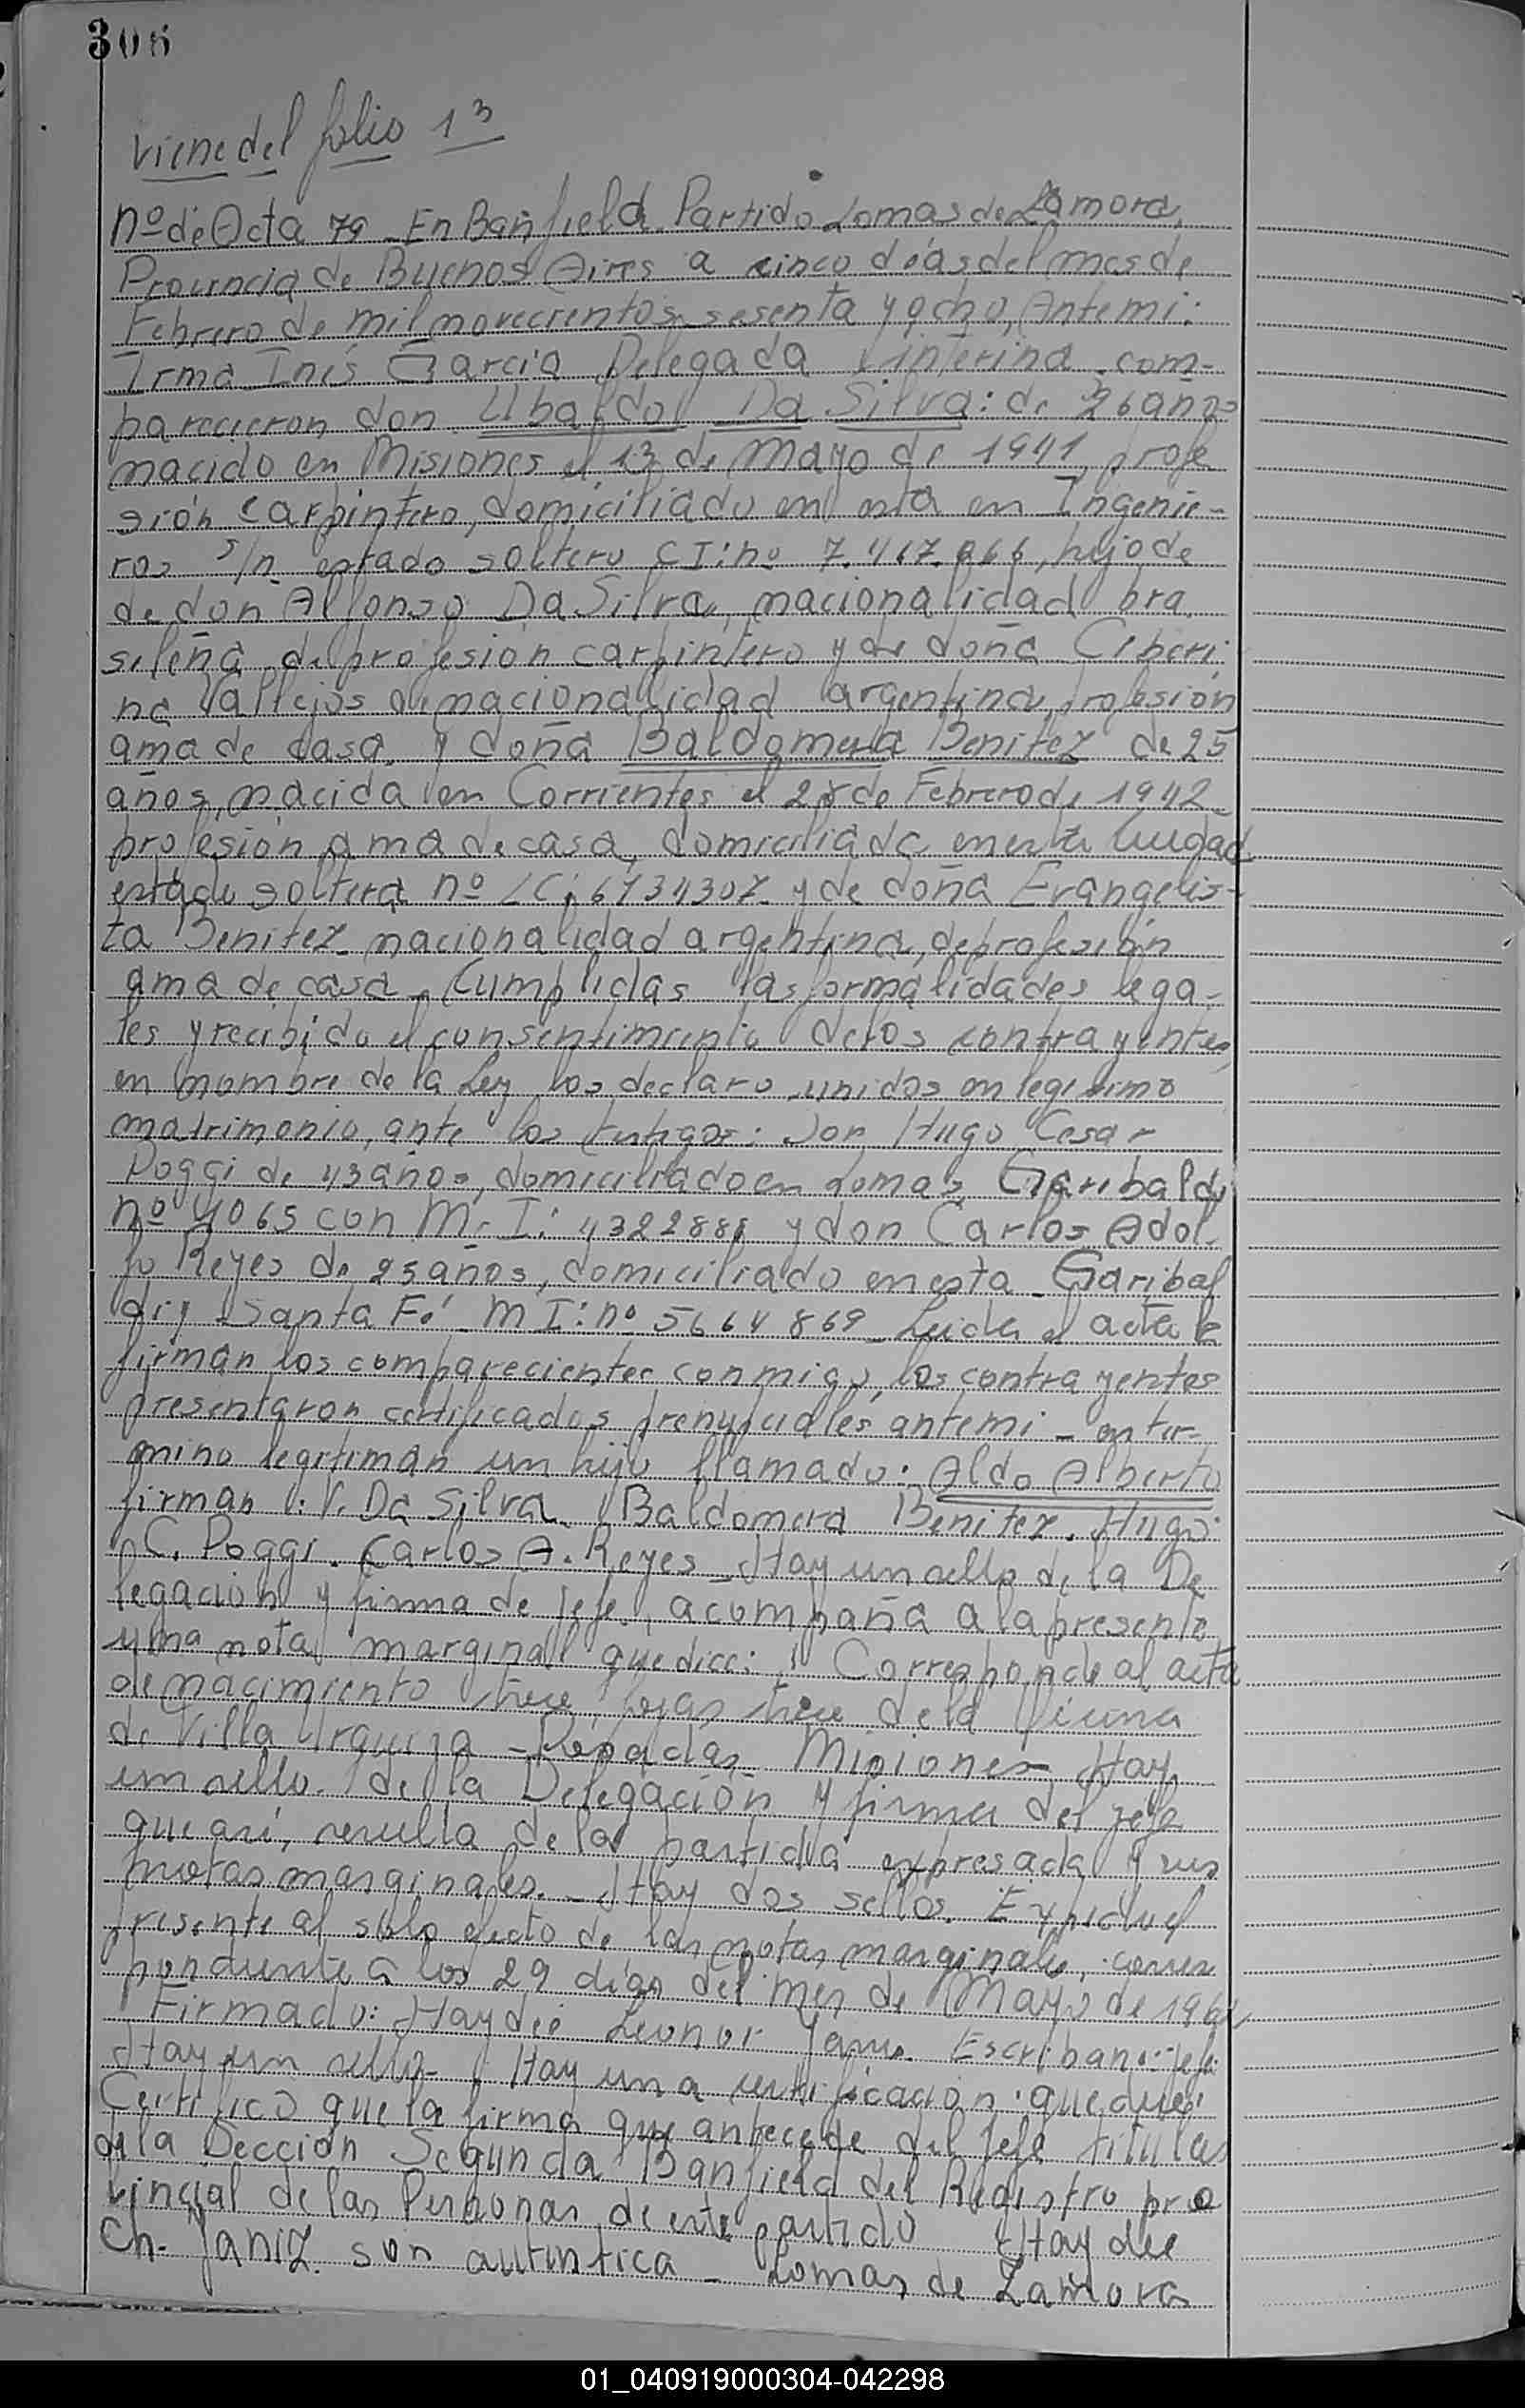 306
viene del folio 13
nº de Acta 79 - En Banfield Partido Lomas de Zamora,
Provincia de Buenos Aires a cinco días del mes de
Febrero de mil novecientos sesenta y ocho, Antemi:
Irma Inés Garcia Delegada interina com-
parecieron don Ubaldo Da Silva: de 26 años
nacido en Misiones el 13 de Mayo de 1941, profe
sión carpintero, domiciliado en esta en Ingenie-
ros s/n estado soltero CI: nº 7.417.066, hijo de
de don Alfonso Da Silva, nacionalidad bra
sileña, de profesión carpintero y de doña Ceberi
na Vallejos de nacionalidad argentina, profesión
ama de casa. y doña Baldomera Benitez de 25
años, nacida en Corrientes el 28 de Febrero de 1942
profesión ama de casa, domiciliada en esta ciudad
estado soltera nº LC: 6134307. y de doña Evangelis-
ta Benitez nacionalidad argentina, de profesión
ama de casa. Cumplidas las formalidades lega-
les y recibido el consentimiento de los contrayentes,
en nombre de la Ley los declaro unidos en legitimo
matrimonio, ante los testigos: Don Hugo Cesar
Poggi de 43 años, domiciliado en Lomas, Garibaldi
nº 4065 con M. I: 4322888 y don Carlos Adol
fo Reyes de 25 años, domiciliado en esta - Garibal
di y Santa Fé M I: nº 5664869 - Leida el acta la
firman los comparecientes conmigo, los contrayentes
presentaron certificados prenupciales antemi - en ter-
mino legitiman un hijo llamado: Aldo Alberto
firman: V. Da Silva. Baldomera Benitez. Hugo
C. Poggi. Carlos A. Reyes - Hay un sello de la De
legación y firma de jefe, acompaña a la presente
una nota marginal que dice: Corresponde al acta
de nacimiento trece, fojas trece de la
de Villa Urquiza - Posadas Misiones - Hay
un sello de la Delegación y firma del jefe
que así, resulta de la partida expresada y sus
notas marginales. - Hay dos sellos. Expido el
presente al solo efecto de las notas marginales, corres
pondiente a los 29 días del mes de Mayo de 1968
Firmado: Haydée Leonor Escribano: jefe
Hay un sello - Hay una certificación: que dice:
Certifico que la firma que antecede del jefe titular
de la Sección Segunda Banfield del Registro pro
vincial de las Personas de este partido Haydee
Ch. Janiz son autentica - Lomas de Zamora
01_040919000304-042298